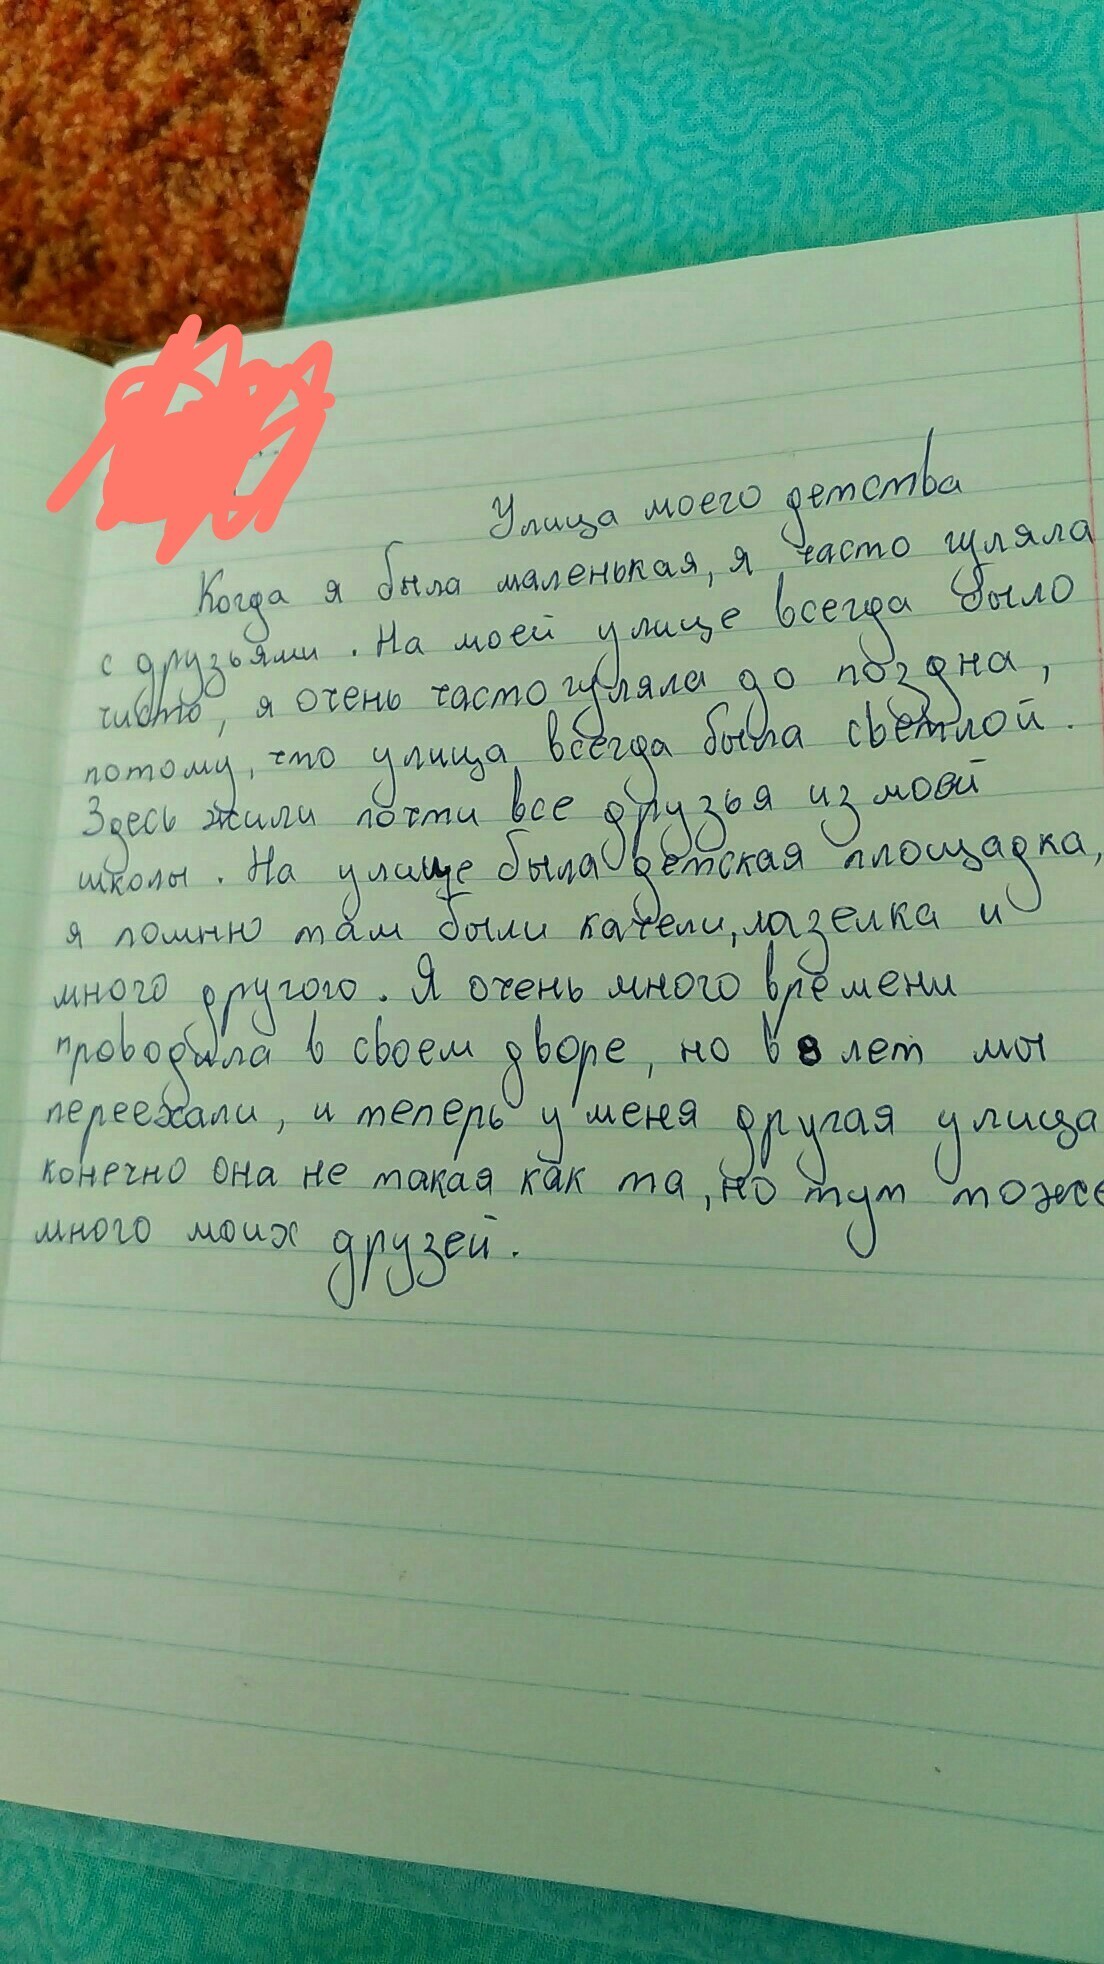 Улица моего детства
Когда я была маленькая, я часто гуляла
с друзьями. На моей улице всегда было
чисто, я очень часто гуляла до поздна,
потому, что улица всегда была светлой.
Здесь жили почти все друзья из моей
школы. На улице была детская площадка,
я помню там были качели, лазелка и
много другого. Я очень много времени
проводила в своем дворе, но в 8 лет мы
переехали, и теперь у меня другая улица
конечно она не такая как та, но тут тоже
много моих друзей.